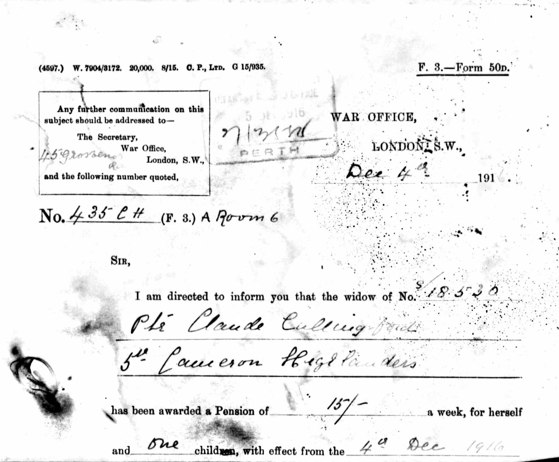 (4597.) W. 7904/3172. 20,000. 8/15. C. P., LTD. G 15/935.
F. 3.—Form 50D.
Any further communication on this
subject should be addressed to—
The Secretary,
War Office,
London, S.W.,
and the following number quoted,
PERTH
WAR OFFICE,
LONDON, S.W.,
Dec 4th 191
No. 435 CH (F. 3.) A Room 6
SIR,
I am directed to inform you that the widow of No. S/18530
Pte Claude
5th Cameron Highlanders
has been awarded a Pension of 15/- a week, for herself
and one children, with effect from the 4th Dec 1916